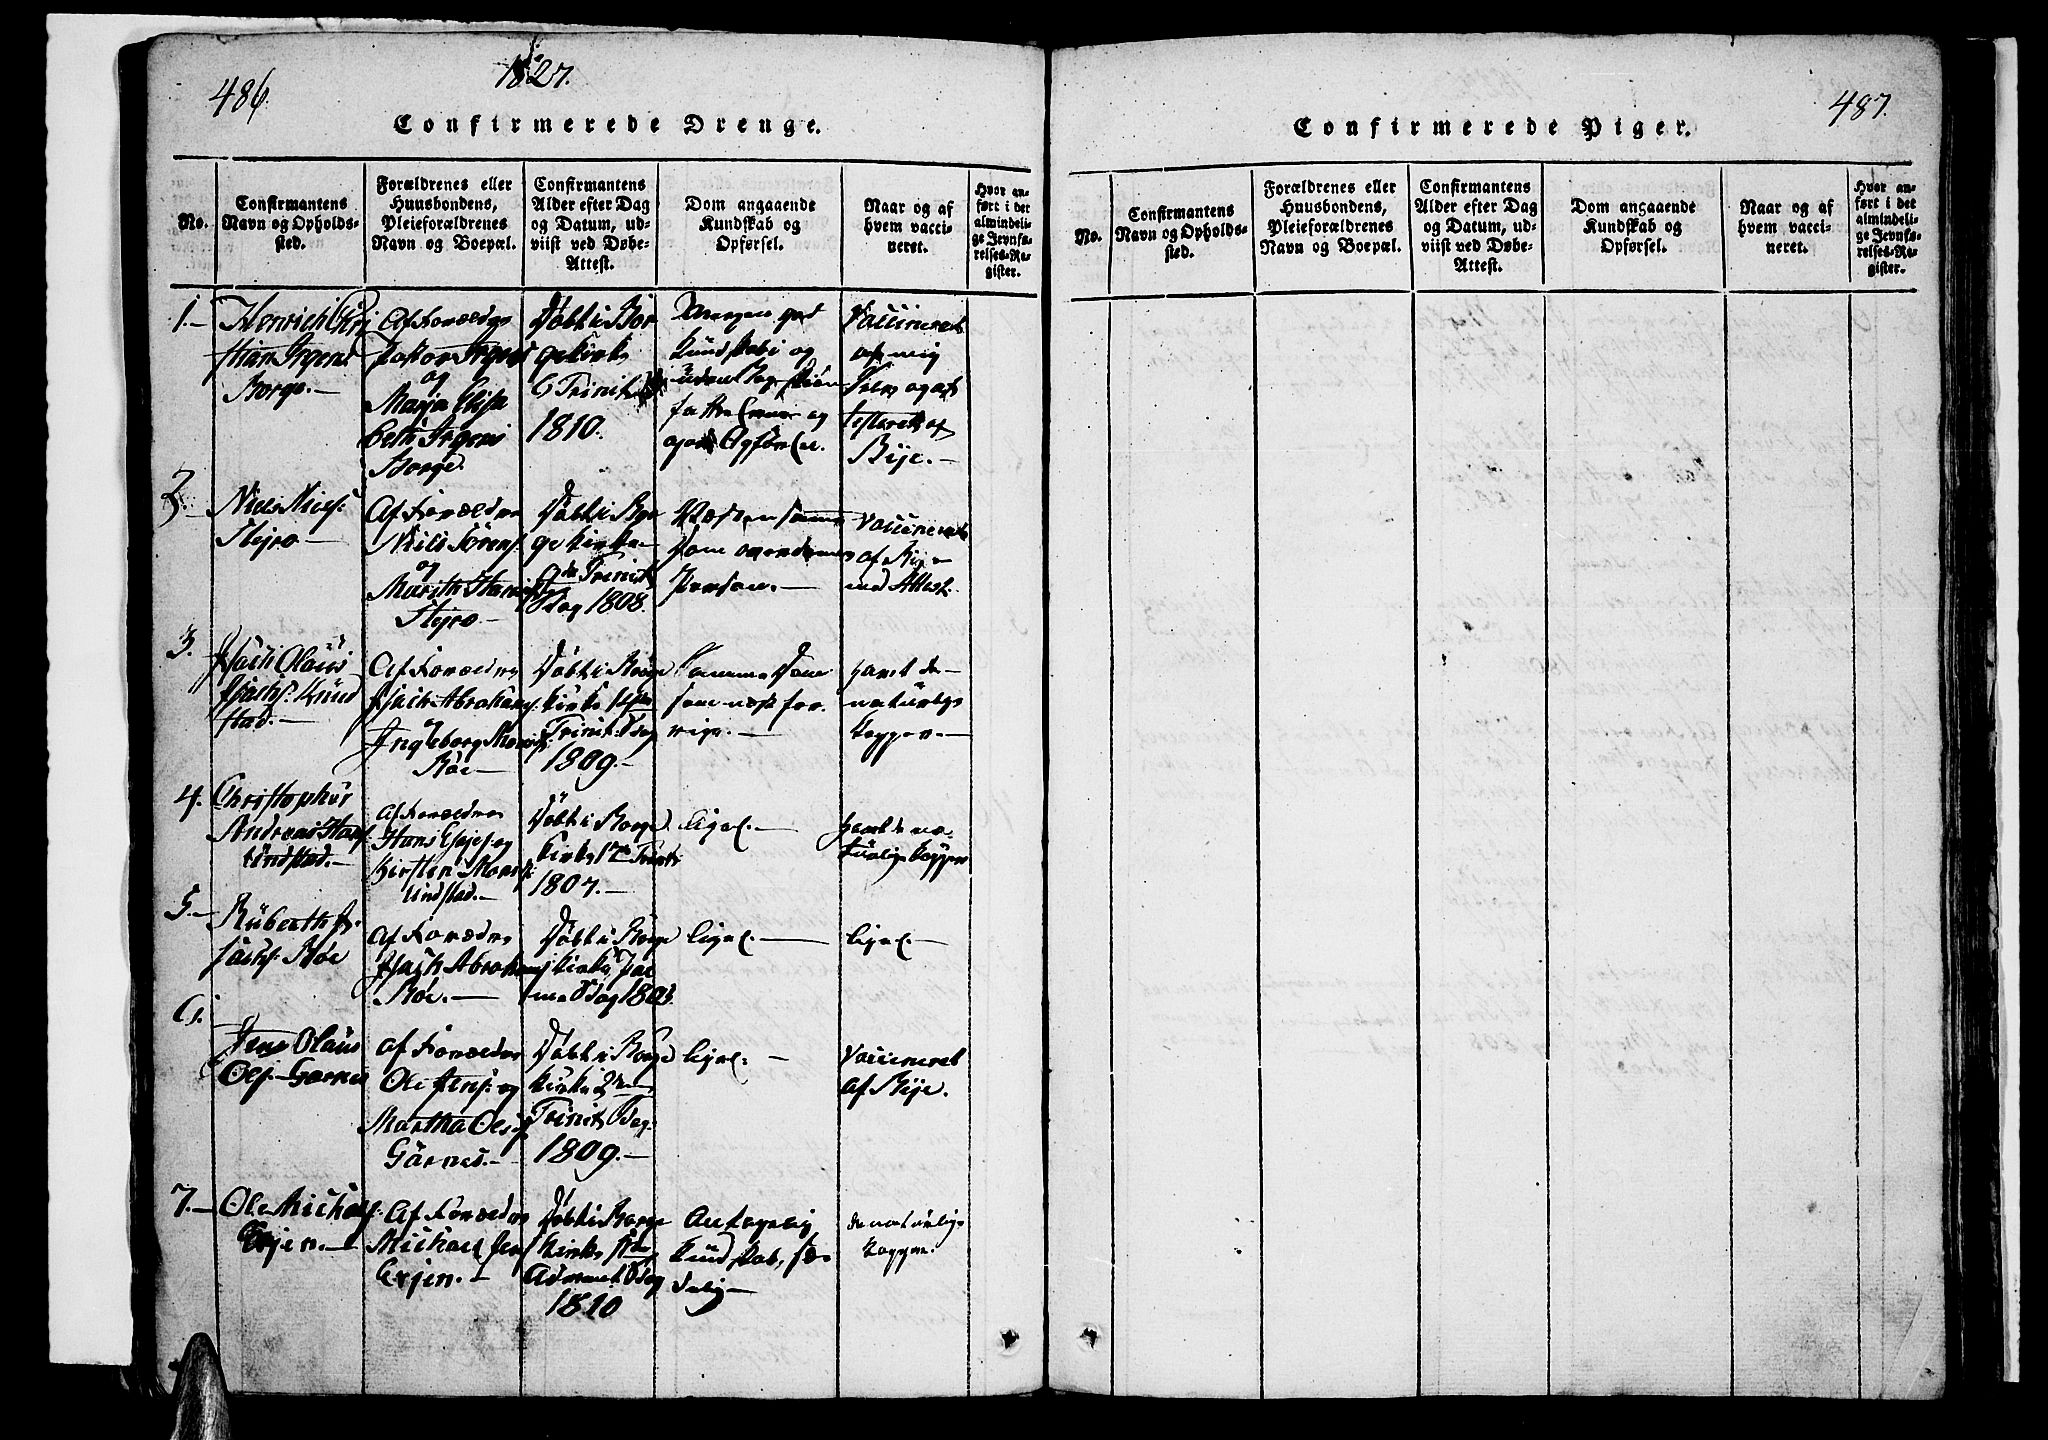 486.
1827.
Confirmerede Drenge.
No.
Confirmantens
Navn og Opholds-
sted.
Forældrenes eller
Huusbondens,
Pleieforældrenes
Navn og Boepæl.
Confirmantens
Alder efter Dag
og Datum, ud-
viist ved Døbe-
Attest.
Dom angaaende
Kundskab og
Opførsel.
Naar og af
hvem vacci-
neret.
Hvor an-
ført i det
almindeli-
ge Jevnfø-
relses-Re-
gister.
1.
Henrich Chri
stian Irgens
Borge.
Af Forældre
Irgens
og
Maria Elisa
beth Irgens
Borge.
Døbt i Bor
ge Kirke
6 Trinit
1810.
Meget god
Kundskab og
og
god Opførsel.
Vaccineret
af mig
selv og at
testeret af
Bye.
2.
Niels Niels.
Af Forældre
Niels Sörens.
og
Marith Hans
Døbt i Bor
ge Kirke
Trinit
dag 1808.
samme
Dom
Person.
Vaccineret
af Bye
med Attest.
3.
Isach Olaus
Isachs. Kund
stad.
Af Forældre
Isach Abrahams.
og
Ingeborg
Böe
Døbt i Borge
Kirke
Trinit. Sdag
1809.
Samme Dom
som næst for
rige.
havt de
naturlige
Kopper.
4.
Christopher
Andreas Hans.
Undstad.
Af Forældre
Hans og
Kirsten
Undstad.
Døbt i Borge
Kirke 17de Trinit
1807.
Ligel.
havt de na-
turlige Kopper
5.
Ruberth I-
sachs. Böe
Af Forældre
Isach Abrahams.
Böe.
Døbt i Borge
Kirke
ligel.
ligel.
6.
Jens Olaus
Ols. Gaarnes
Af Forældre
Ole Jens. og
Martha Ols
Gaarnes.
Døbt i Borge
Kirke 2den
Trinit Sdag.
1809.
ligel.
Vaccineret
af Bye.
7.
Ole Michels.
Exjen.
Af Forældre
Michael Jens
Exjen.
Døbt i Borge
Kirke 1ste
Advent Sdag
1810
Antagelig
Kundskab, sæ
delig
de naturlige
Kopper.
487.
Confirmerede Piger.
No.
Confirmantens
Navn og Opholds-
sted.
Forældrenes eller
Huusbondens,
Pleieforældrenes
Navn og Boepæl.
Confirmantens
Alder efter Dag
og Datum, ud-
viist ved Døbe-
Attest.
Dom angaaende
Kundskab og
Opførsel.
Naar og af
hvem vacci-
neret.
Hvor an-
ført i det
almindeli-
ge Jevnfø-
relses-Re-
gister.